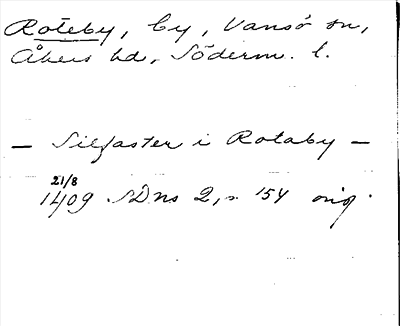 Roteby, by, Vansö sn,
Åkers hd, Söderm. l.
— Silfaster i Rotaby —
21/8
1409 SDns 2, s 154 orig.